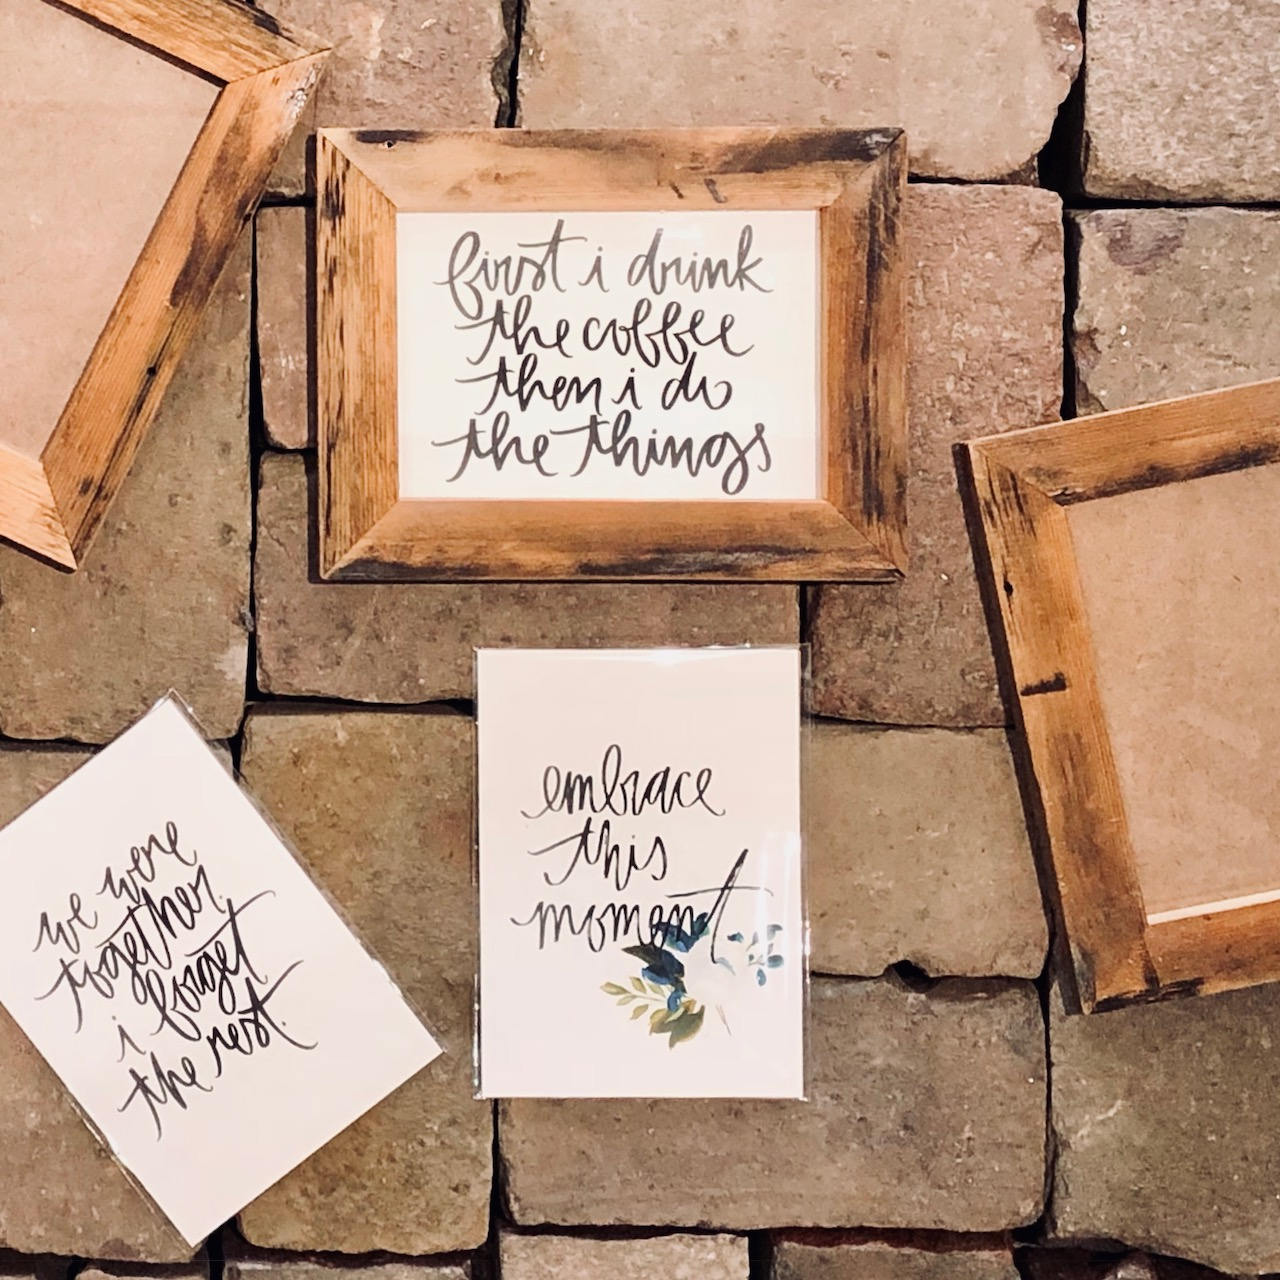 first i drink
the coffee
then i do
the things
embrace
this
moment
we were
together.
i forget
the rest.